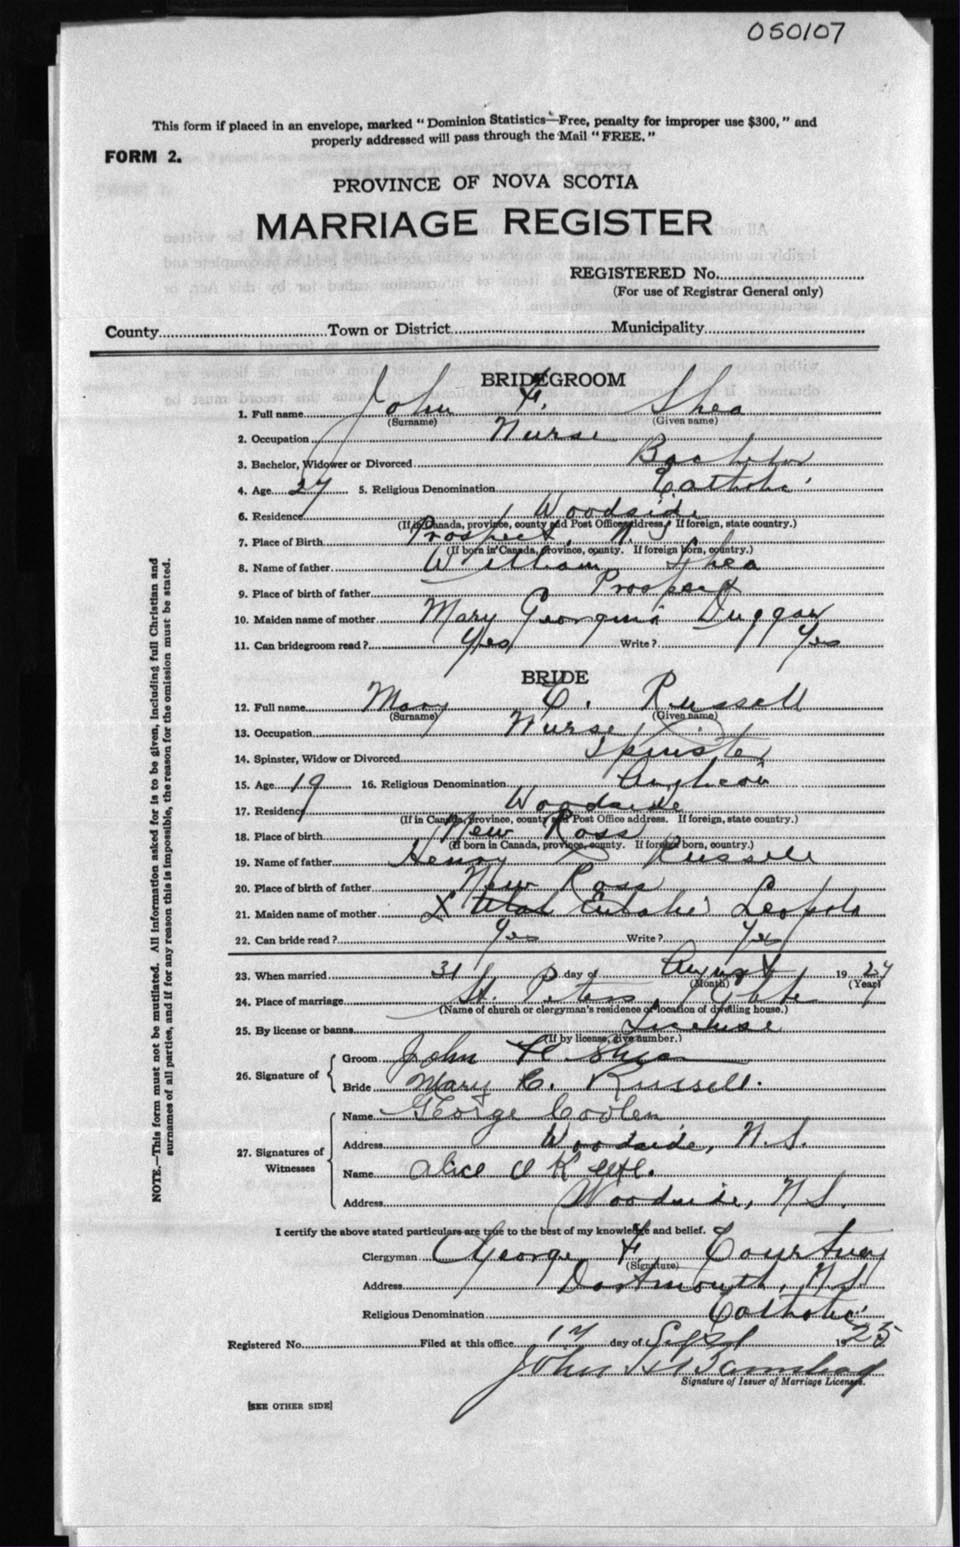 050107
This form if placed in an envelope, marked "Dominion Statistics—Free, penalty for improper use $300," and
properly addressed will pass through the Mail "FREE."
FORM 2.
PROVINCE OF NOVA SCOTIA
MARRIAGE REGISTER
REGISTERED No.
(For use of Registrar General only)
County Town or District Municipality
BRIDEGROOM
1. Full name John F. Shea
(Surname) (Given name)
2. Occupation Nurse
3. Bachelor, Widower or Divorced Bachelor
4. Age 27 5. Religious Denomination Catholic
6. Residence Woodside
(If in Canada, province, county and Post Office address. If foreign, state country.)
7. Place of Birth Prospect, N.S
(If born in Canada, province, county. If foreign born, country.)
8. Name of father William Shea
9. Place of birth of father Prospect
10. Maiden name of mother Mary Georgina Duggan
11. Can bridegroom read? Yes Write? Yes
BRIDE
12. Full name Mary C. Russell
(Surname) (Given name)
13. Occupation Nurse
14. Spinster, Widow or Divorced Spinster
15. Age 19 16. Religious Denomination Anglican
17. Residency Woodside
(If in Canada, province, county and Post Office address. If foreign, state country.)
18. Place of birth New Ross
(If born in Canada, province, county. If foreign born, country.)
19. Name of father Henry Russell
20. Place of birth of father New Ross
21. Maiden name of mother Leopold
22. Can bride read? Yes Write? Yes
23. When married 31 day of August 19 27
(Month) (Year)
24. Place of marriage St. Peters Glebe
(Name of church or clergyman's residence or location of dwelling house.)
25. By license or banns License
(If by license, give number.)
26. Signature of Groom John F Shea
Bride Mary C. Russell.
27. Signatures of Witnesses Name George Coolen
Address Woodside, N.S.
Name Alice
Address Woodside, N.S.
I certify the above stated particulars are true to the best of my knowledge and belief.
Clergyman George F. Courtney
(Signature)
Address Dartmouth, N.S.
Religious Denomination Catholic
Registered No. Filed at this office 17 day of Sept 19 25
John
Signature of Issuer of Marriage Licenses.
[SEE OTHER SIDE]
NOTE.—This form must not be mutilated. All information asked for is to be given, including full Christian and
surnames of all parties, and if for any reason this is impossible, the reason for the omission must be stated.